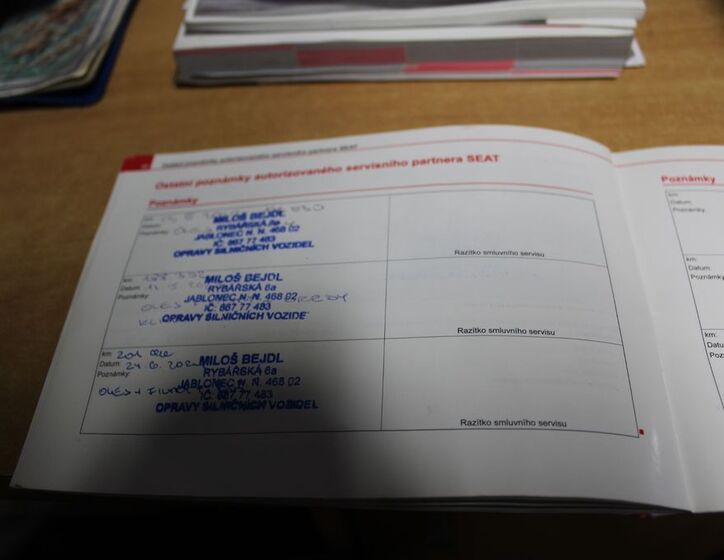 Ostatní poznámky autorizovaného servisního partnera SEAT
Ostatní poznámky autorizovaného servisního partnera SEAT
Poznámky
km:
Datum:
Poznámky:
MILOŠ BEJDL
RYBÁŘSKÁ 6a
JABLONEC N. N. 468 02
IČ: 867 77 483
OPRAVY SILNIČNÍCH VOZIDEL
Razítko smluvního servisu
km:
Datum:
Poznámky:
MILOŠ BEJDL
RYBÁŘSKÁ 6a
JABLONEC N. N. 468 02
IČ: 867 77 483
OPRAVY SILNIČNÍCH VOZIDE
OLEJ
Razítko smluvního servisu
km: 201
Datum: 24.6.202
Poznámky:
OLEJ +
MILOŠ BEJDL
RYBÁŘSKÁ 6a
JABLONEC N. N. 468 02
IČ: 867 77 483
OPRAVY SILNIČNÍCH VOZIDEL
Razítko smluvního servisu
Poznámky
km:
Datum:
Poznámky:
km:
Datum:
km:
Datum: